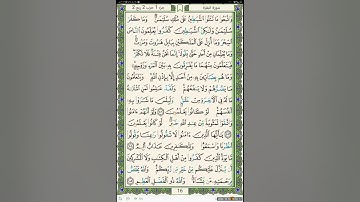 سورة البقرة جزء 1 حزب 2 ربع 2
وَاتَّبَعُوا مَا تَتْلُو الشَّيَاطِينُ عَلَىٰ مُلْكِ سُلَيْمَانَ وَمَا كَفَرَ
سُلَيْمَانُ وَلَٰكِنَّ الشَّيَاطِينَ كَفَرُوا يُعَلِّمُونَ النَّاسَ
السِّحْرَ وَمَا أُنزِلَ عَلَى الْمَلَكَيْنِ بِبَابِلَ هَارُوتَ وَمَارُوتَ
وَمَا يُعَلِّمَانِ مِنْ أَحَدٍ حَتَّىٰ يَقُولَا إِنَّمَا نَحْنُ فِتْنَةٌ فَلَا تَكْفُرْ
فَيَتَعَلَّمُونَ مِنْهُمَا مَا يُفَرِّقُونَ بِهِ بَيْنَ الْمَرْءِ وَزَوْجِهِ
وَمَا هُم بِضَارِّينَ بِهِ مِنْ أَحَدٍ إِلَّا بِإِذْنِ اللَّهِ وَيَتَعَلَّمُونَ
مَا يَضُرُّهُمْ وَلَا يَنفَعُهُمْ وَلَقَدْ عَلِمُوا لَمَنِ اشْتَرَاهُ
مَا لَهُ فِي الْآخِرَةِ مِنْ خَلَاقٍ وَلَبِئْسَ مَا شَرَوْا بِهِ
أَنفُسَهُمْ لَوْ كَانُوا يَعْلَمُونَ ١٠٢ وَلَوْ أَنَّهُمْ آمَنُوا
وَاتَّقَوْا لَمَثُوبَةٌ مِّنْ عِندِ اللَّهِ خَيْرٌ لَّوْ كَانُوا يَعْلَمُونَ
١٠٣ يَا أَيُّهَا الَّذِينَ آمَنُوا لَا تَقُولُوا رَاعِنَا وَقُولُوا
انظُرْنَا وَاسْمَعُوا وَلِلْكَافِرِينَ عَذَابٌ أَلِيمٌ ١٠٤
مَّا يَوَدُّ الَّذِينَ كَفَرُوا مِنْ أَهْلِ الْكِتَابِ وَلَا الْمُشْرِكِينَ
أَن يُنَزَّلَ عَلَيْكُم مِّنْ خَيْرٍ مِّن رَّبِّكُمْ وَاللَّهُ يَخْتَصُّ
بِرَحْمَتِهِ مَن يَشَاءُ وَاللَّهُ ذُو الْفَضْلِ الْعَظِيمِ ١٠٥
16